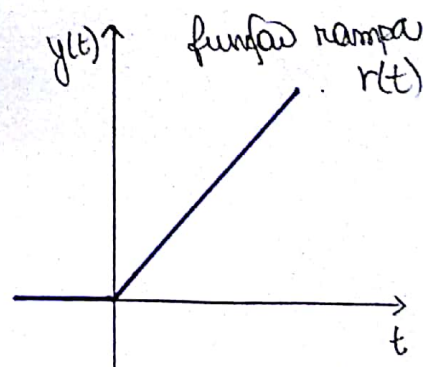 y(t)
função rampa
r(t)
t